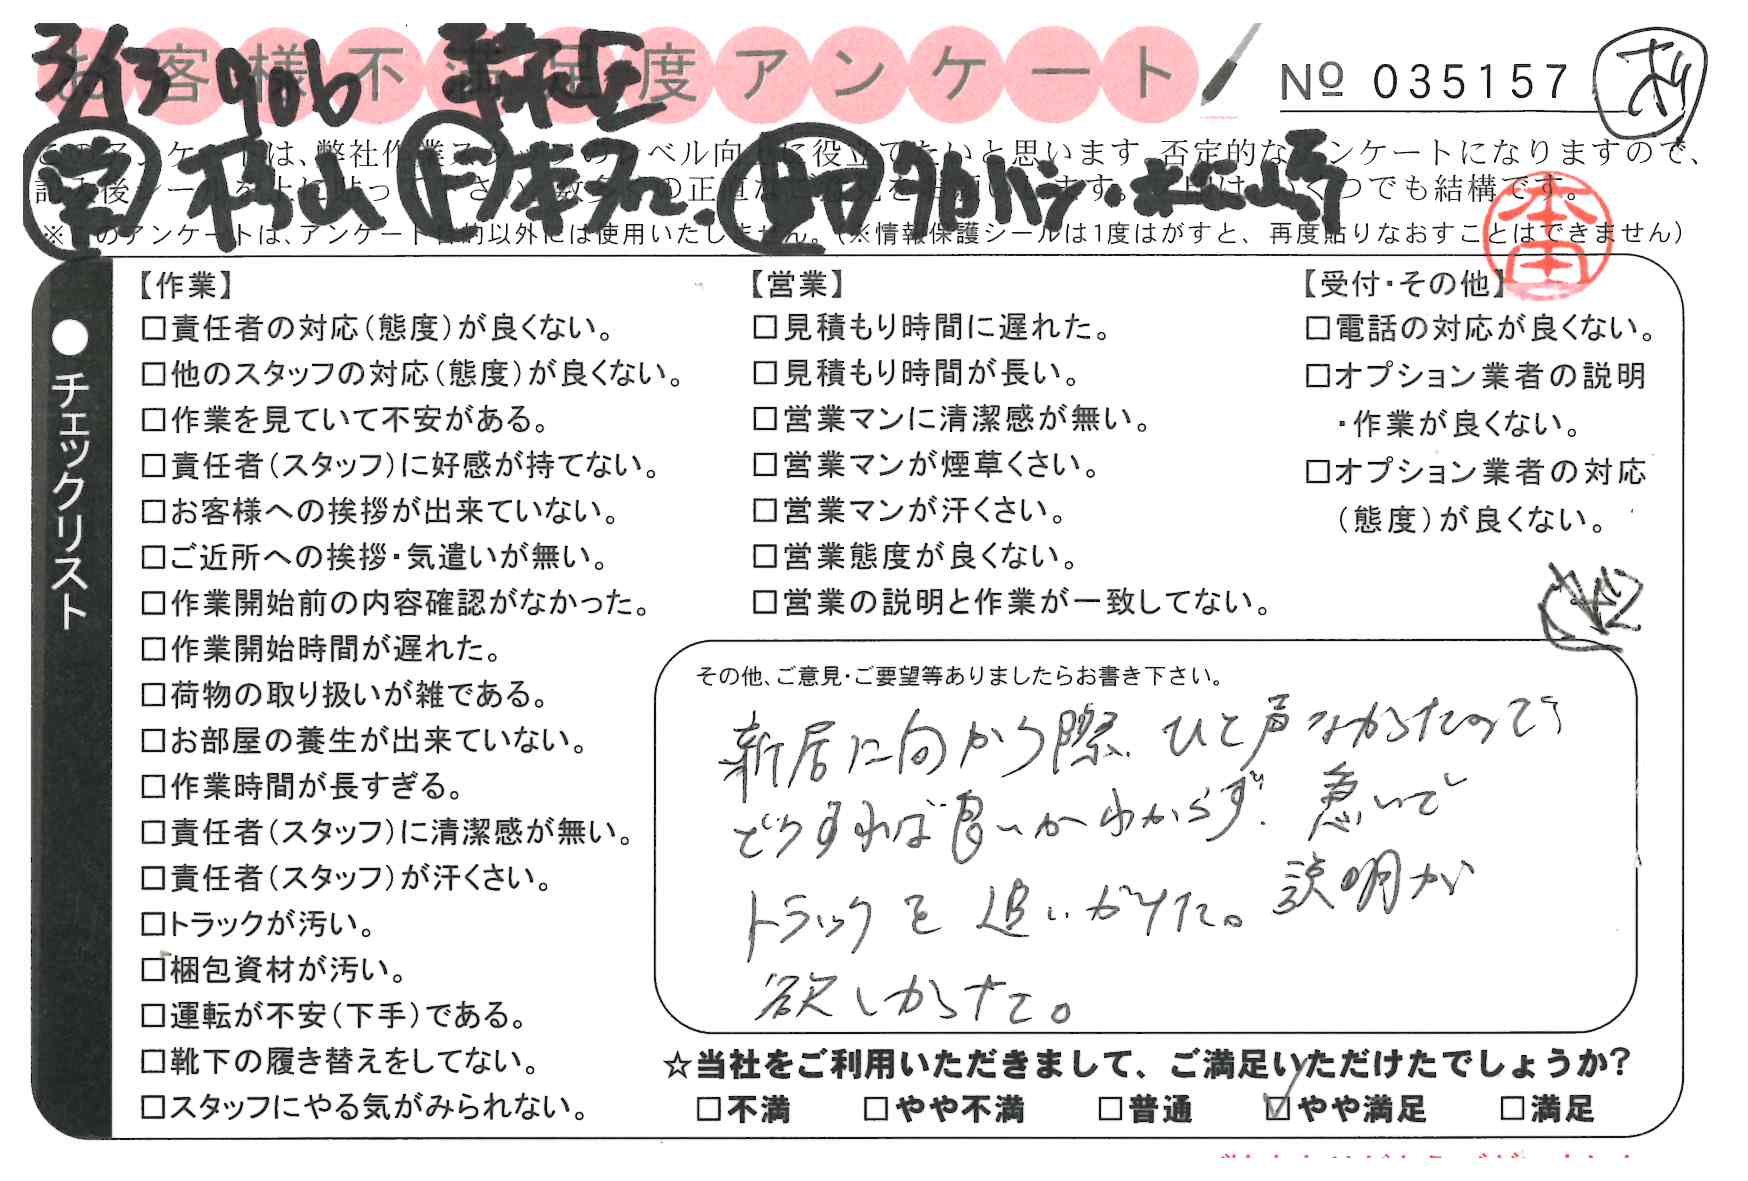 お客様不満足度アンケート
3/13 906
№ 035157
このアンケートは、弊社作業スタッフのレベル向上に役立てたいと思います。否定的なアンケートになりますので、
※このアンケートは、アンケート目的以外には使用いたしません。（※情報保護シールは1度はがすと、再度貼りなおすことはできません）
本田
●チェックリスト
【作業】
□責任者の対応（態度）が良くない。
□他のスタッフの対応（態度）が良くない。
□作業を見ていて不安がある。
□責任者（スタッフ）に好感が持てない。
□お客様への挨拶が出来ていない。
□ご近所への挨拶・気遣いが無い。
□作業開始前の内容確認がなかった。
□作業開始時間が遅れた。
□荷物の取り扱いが雑である。
□お部屋の養生が出来ていない。
□作業時間が長すぎる。
□責任者（スタッフ）に清潔感が無い。
□責任者（スタッフ）が汗くさい。
□トラックが汚い。
□梱包資材が汚い。
□運転が不安（下手）である。
□靴下の履き替えをしてない。
□スタッフにやる気がみられない。
【営業】
□見積もり時間に遅れた。
□見積もり時間が長い。
□営業マンに清潔感が無い。
□営業マンが煙草くさい。
□営業マンが汗くさい。
□営業態度が良くない。
□営業の説明と作業が一致してない。
【受付・その他】
□電話の対応が良くない。
□オプション業者の説明
・作業が良くない。
□オプション業者の対応
（態度）が良くない。
その他、ご意見・ご要望等ありましたらお書き下さい。
新居に向かう際、ひと声なかったので、
どうすれば良いかわからず、急いで
トラックを追いかけた。説明が
欲しかったです。
☆当社をご利用いただきまして、ご満足いただけたでしょうか？
□不満 □やや不満 □普通 ☑やや満足 □満足